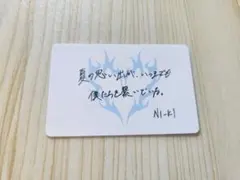 夏の思い出が、いつまでも
僕たちを繋いでいる。
NI-KI